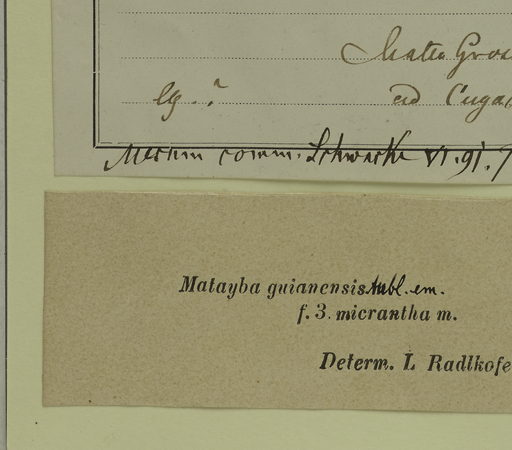 Matto Gros
lg. ?
ad Cuya
Mecum comm. Schwacke VI. 91. 7
Matayba guianensis Aubl. em.
f. 3. micrantha m.
Determ. L Radlkofe